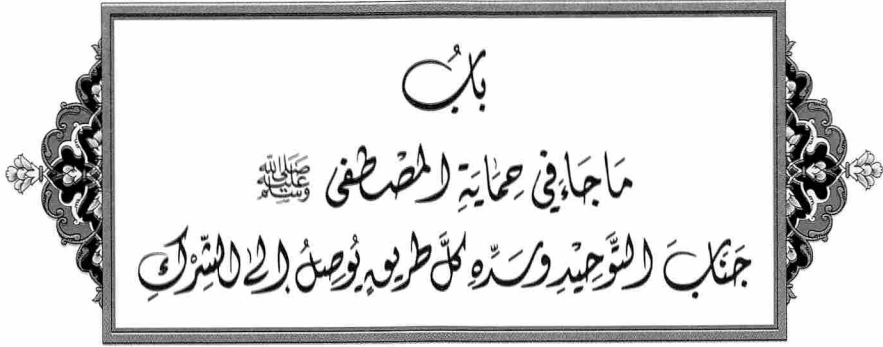 بابُ
مَا جَاءَ فِي حِمَايَةِ الْمُصْطَفَى ﷺ
جَنَابَ التَّوْحِيْدِ وَسَدِّهِ كُلَّ طَرِيقٍ يُوصِلُ إِلَى الشِّرْكِ